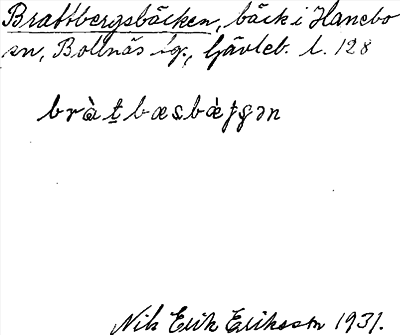 Brattbergsbäcken, bäck i Hanebo
sn, Bollnäs tg., Gävleb. l. 128
bràt̠bæsbæ̀ʃʂən
Nils Erik Eriksson 1931.